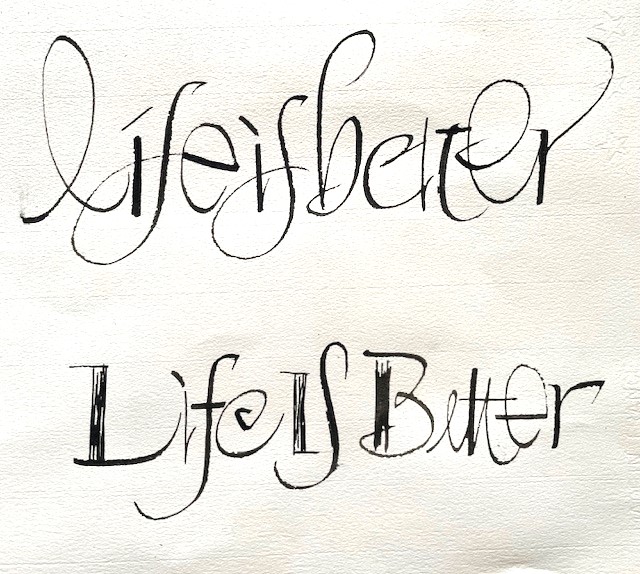 life is better
Life Is Better